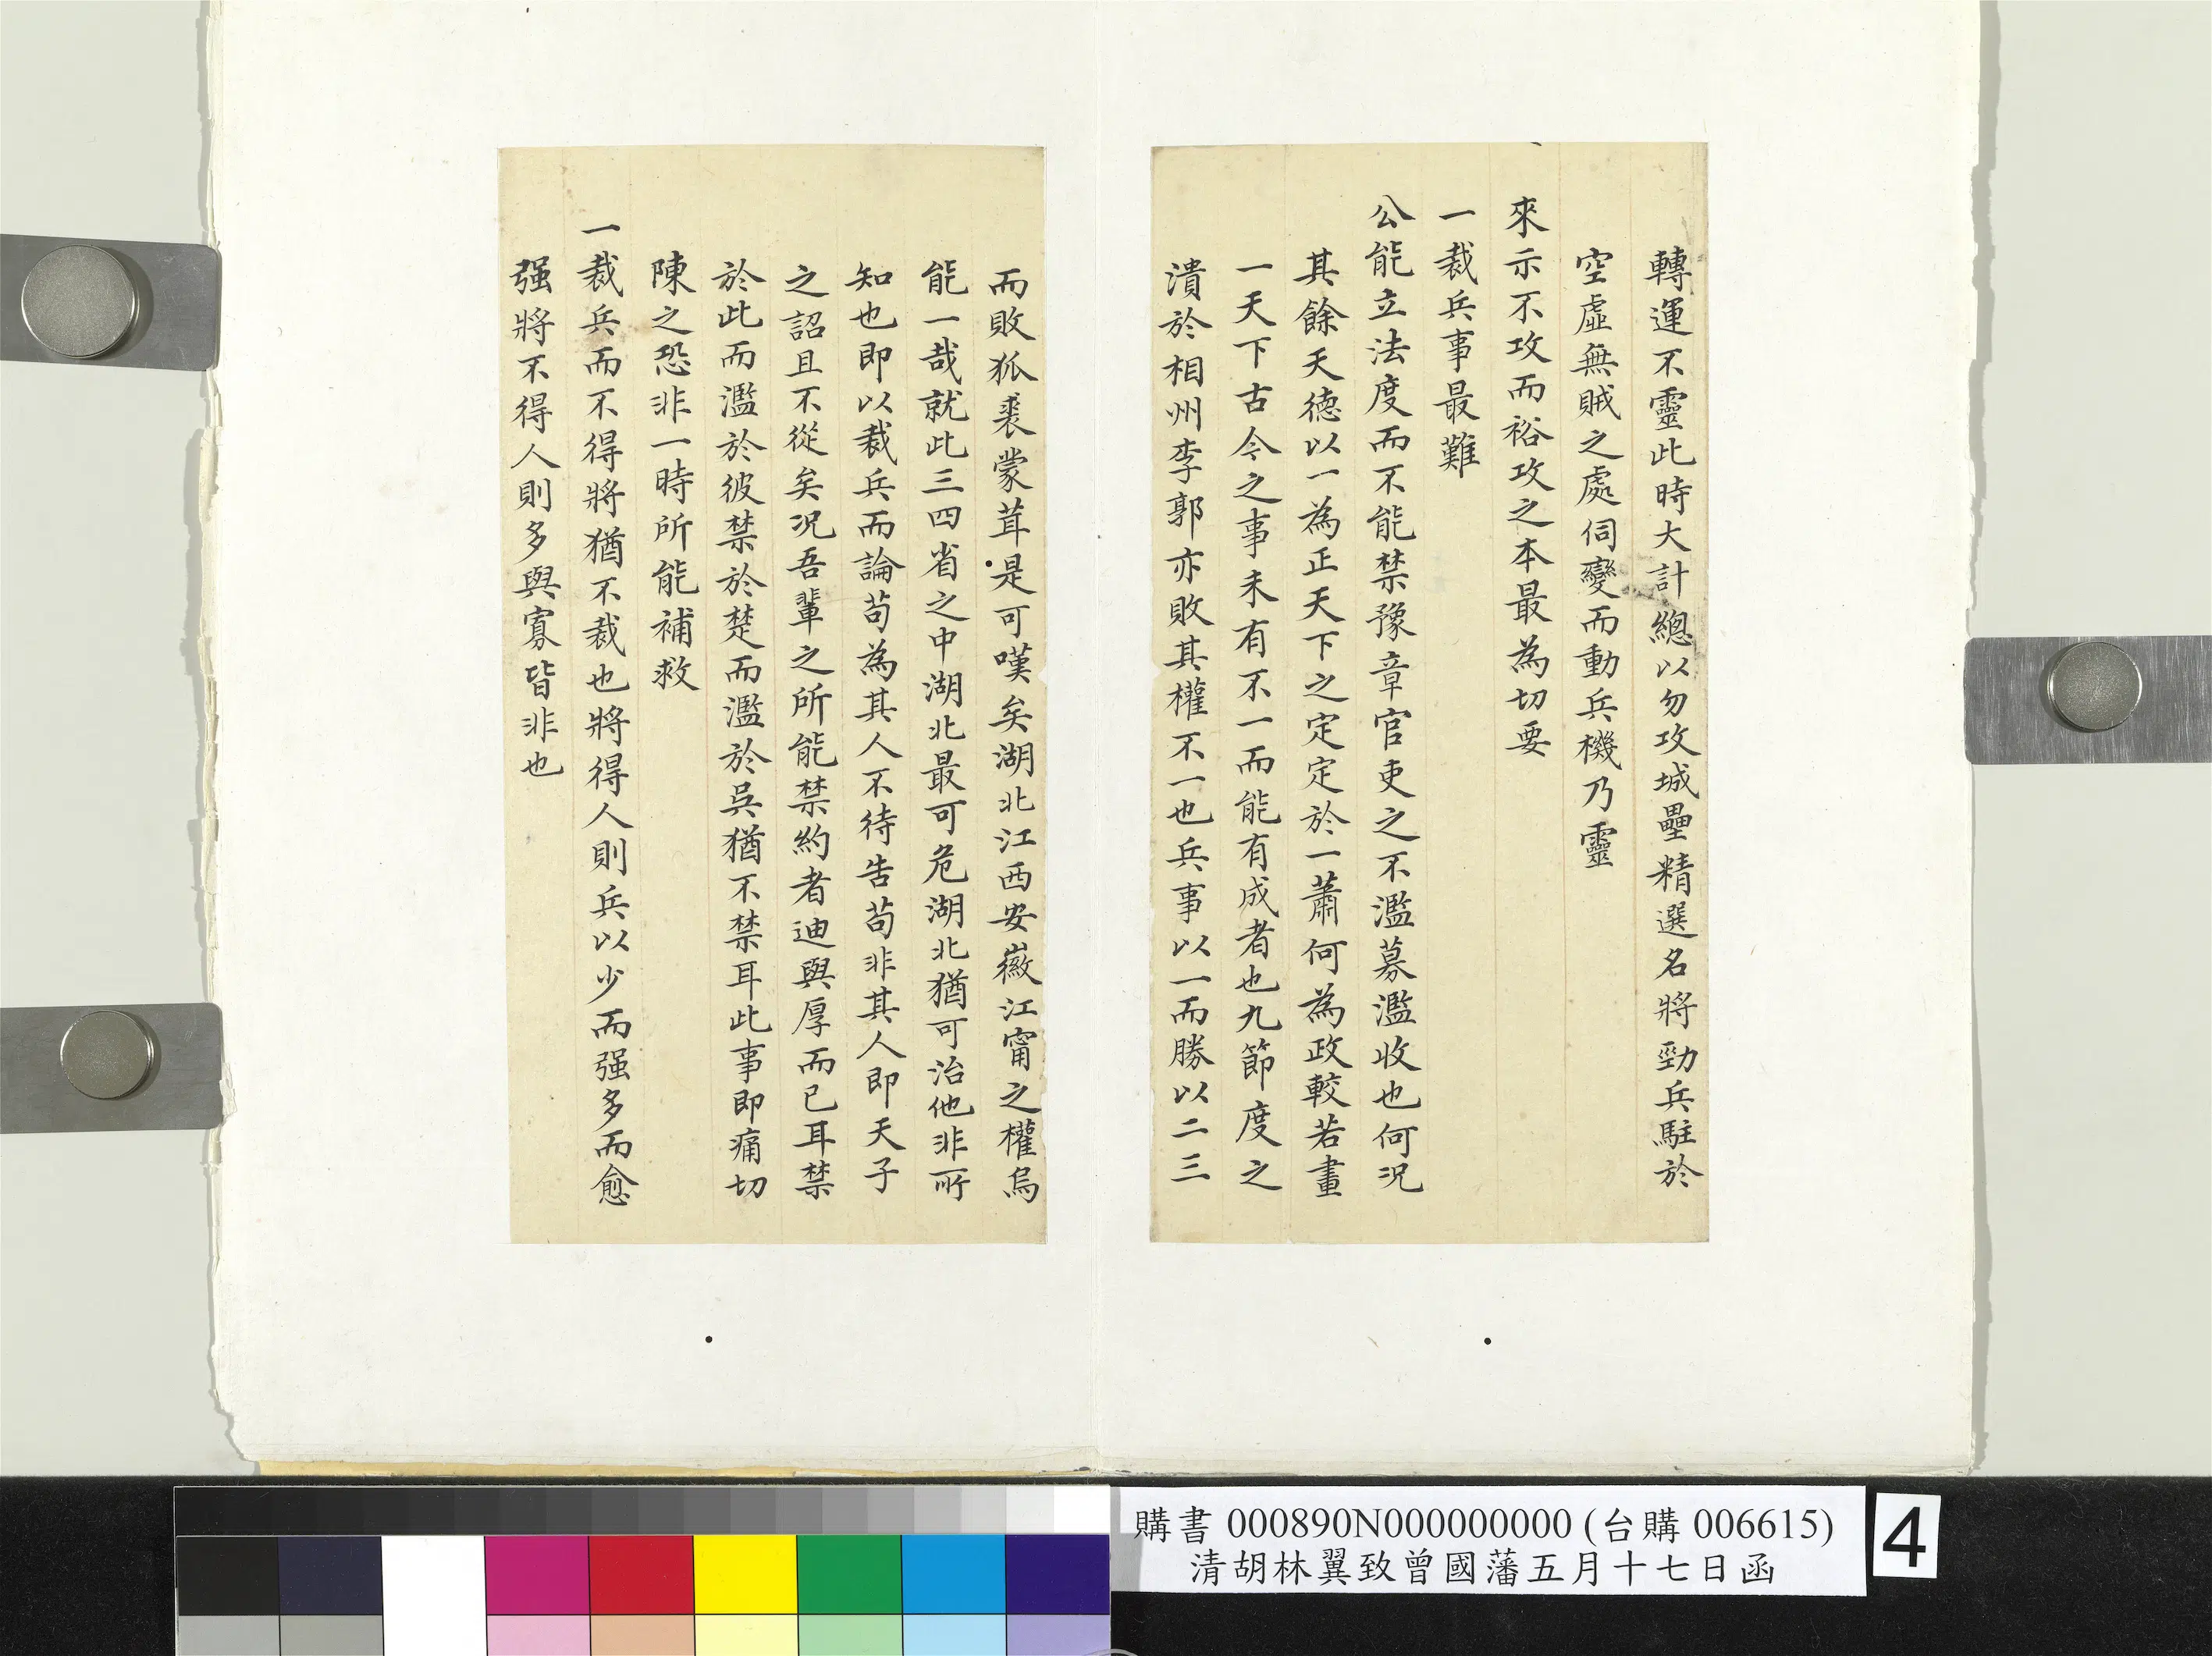 轉運不靈此時大計總以勿攻城壘精選名將勁兵駐於
空虛無賊之處伺變而動兵機乃靈
來示不攻而裕攻之本最為切要
一裁兵事最難
公能立法度而不能禁豫章官吏之不濫募濫收也何況
其餘天德以一為正天下之定定於一蕭何為政較若畫
一天下古今之事未有不一而能有成者也九節度之
潰於相州李郭亦敗其權不一也兵事以一而勝以二三
而敗狐裘蒙茸是可嘆矣湖北江西安徽江甯之權烏
能一哉就此三四省之中湖北最可危湖北猶可治他非所
知也即以裁兵而論苟為其人不待告苟非其人即天子
之詔且不從矣況吾輩之所能禁約者迪與厚而已耳禁
於此而濫於彼禁於楚而濫於吳猶不禁耳此事即痛切
陳之恐非一時所能補救
一裁兵而不得將猶不裁也將得人則兵以少而强多而愈
强將不得人則多與寡皆非也
購書 000890N000000000 (台購 006615)
清胡林翼致曾國藩五月十七日函
4